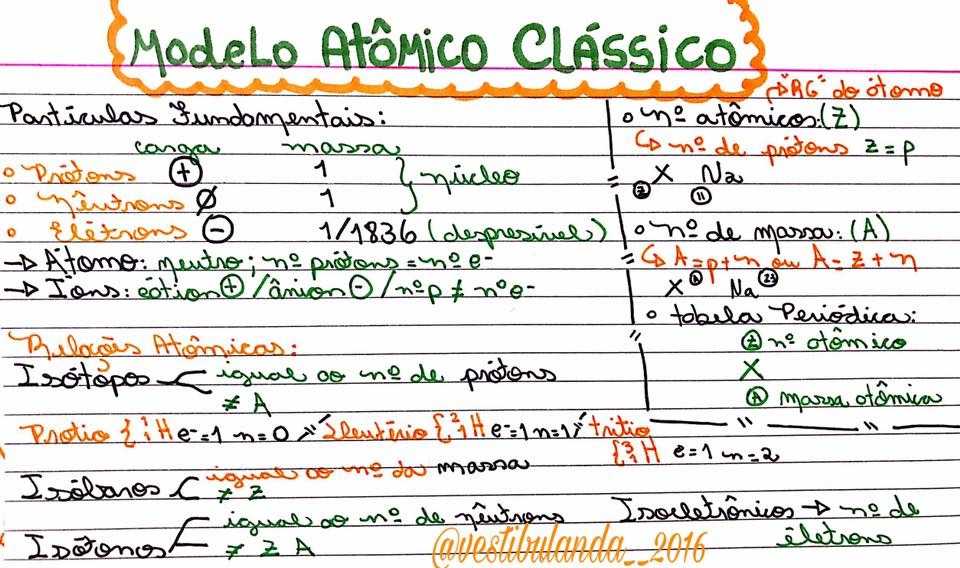 Modelo Atômico Clássico
Partículas Fundamentais:
carga massa
Prótons + 1
Nêutrons Ø 1
} núcleo
Elétrons - 1/1836 (despresível)
→ Átomo: neutro; nº prótons = nº e-
→ Íons: cátion + / ânion - / nº p ≠ nº e-
→ "RG" do átomo
nº atômicos: (Z)
↳ nº de prótons Z = p
Z X 11 Na
nº de massa: (A)
↳ A = p + n ou A = Z + n
X A Na 23
tabela Periódica:
Z nº atômico
X
A massa atômica
Relações Atômicas:
Isótopos igual ao nº de prótons
≠ A
Protio { ¹₁H e-=1 n=0 // Deutério { ²₁H e-=1 n=1 // trítio
{ ³₁H e=1 n=2
Isóbaros igual ao nº da massa
≠ Z
Isótonos igual ao nº de nêutrons
≠ Z A
Isoeletrônicos → nº de
elétrons
@vestibulanda__2016